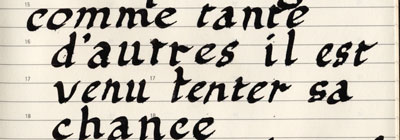 comme tante
d'autres il est
17 venu tenter sa
18 chance